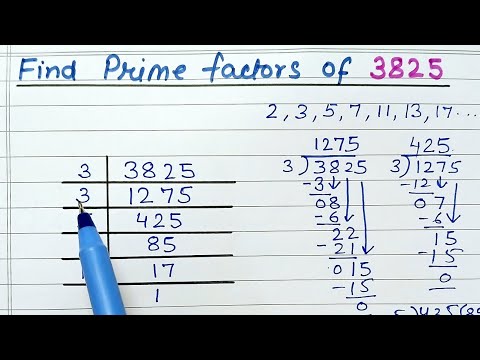 Find Prime factors of 3825
2, 3, 5, 7, 11, 13, 17 ...
3 | 3825
3 | 1275
425
85
17
1
1275
3 ) 3825
-3
08
-6
22
-21
015
-15
0
425
3 ) 1275
-12
07
-6
15
-15
0